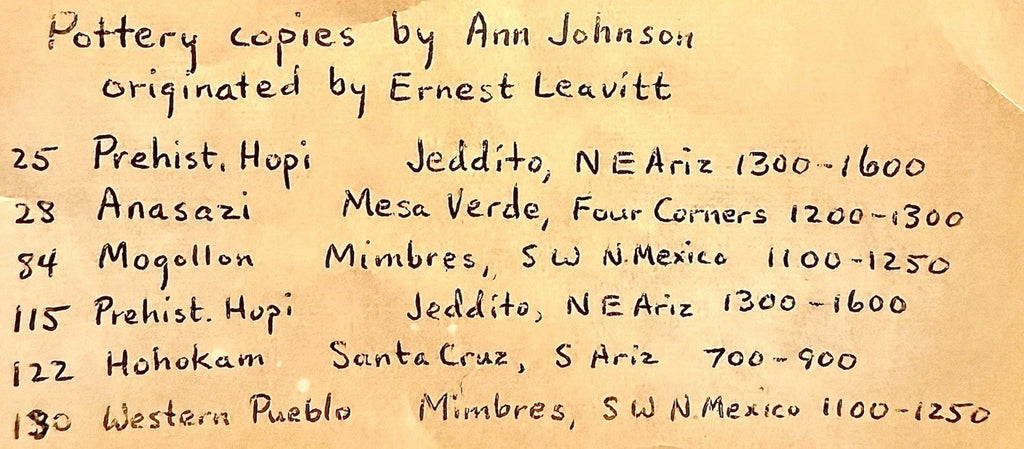 Pottery copies by Ann Johnson
originated by Ernest Leavitt
25 Prehist. Hopi Jeddito, N E Ariz 1300-1600
28 Anasazi Mesa Verde, Four Corners 1200-1300
84 Mogollon Mimbres, S W N.Mexico 1100-1250
115 Prehist. Hopi Jeddito, N E Ariz 1300-1600
122 Hohokam Santa Cruz, S Ariz 700-900
130 Western Pueblo Mimbres, S W N.Mexico 1100-1250